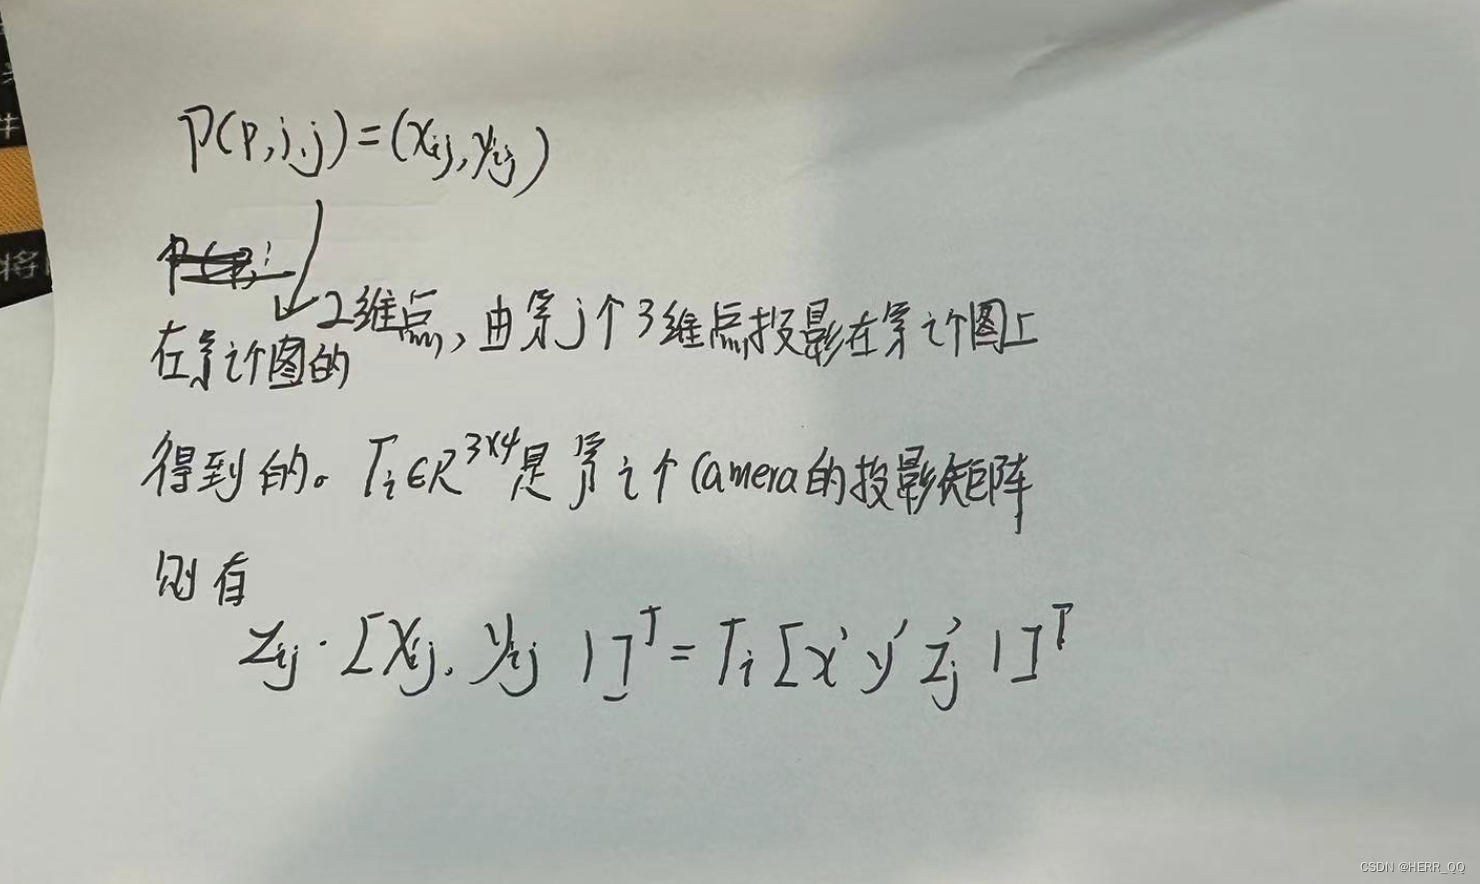 P(p,i,j)=(xij,yij)
2维点,由第j个3维点投影在第i个图上
在第i个图的
得到的。Ti∈R^3×4是第i个Camera的投影矩阵
则有
zij·[xij, yij 1]^T=Ti[x' y' z'j 1]^T
将
CSDN @HERR_QQ